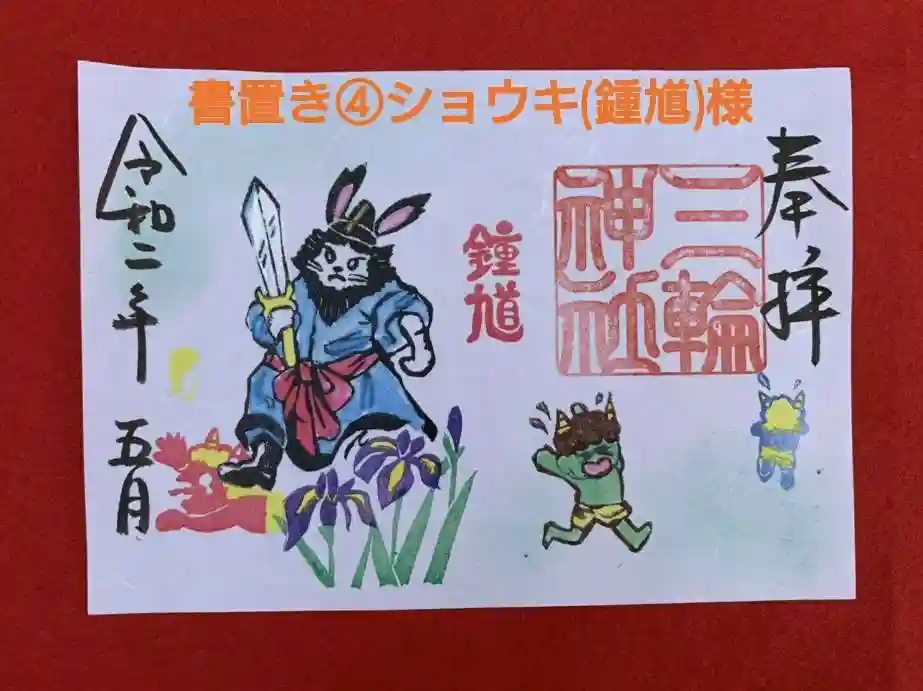 書置き④ショウキ(鍾馗)様
奉拝
三輪
神社
鍾馗
令和二年 五月